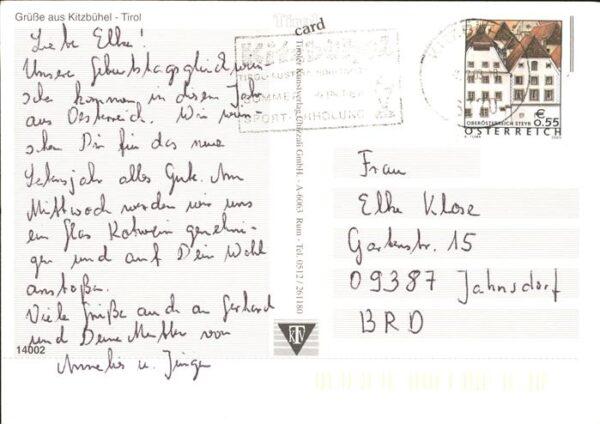 Grüße aus Kitzbühel - Tirol
Liebe Elke!
Unsere Geburtstagsglückwün-
sche kommen in diesem Jahr
aus Oesterreich. Wir wün-
schen Dir für das neue
Lebensjahr alles Gute. Am
Mittwoch werden wir uns
ein Glas Rotwein genehmi-
gen und auf Dein Wohl
anstoßen.
Viele Grüße auch an Gerhard
und Deine Mutter von
Annelies u. Jürgen
14002
Tirol
card
Tiroler Kunstverlag Chizzali GmbH. - A-6063 Rum - Tel. 0512 / 261180
KTV
Kitzbühel
SOMMER
SPORT-ERHOLUNG
€ 0.55
OBERÖSTERREICH STEYR
ÖSTERREICH
Frau
Elke Klose
Gartenstr. 15
09387 Jahnsdorf
BRD